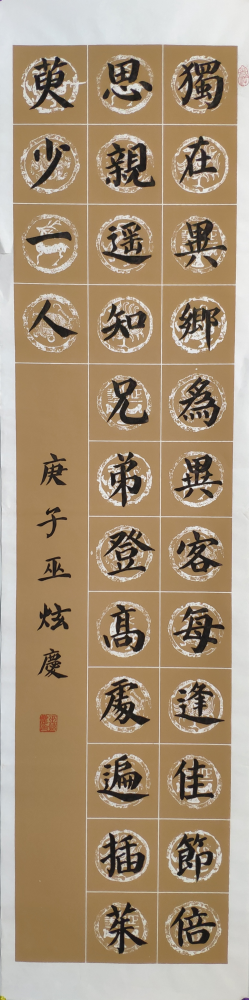 獨在異鄉為異客每逢佳節倍
思親遥知兄弟登高處遍插茱
萸少一人
庚子巫炫慶